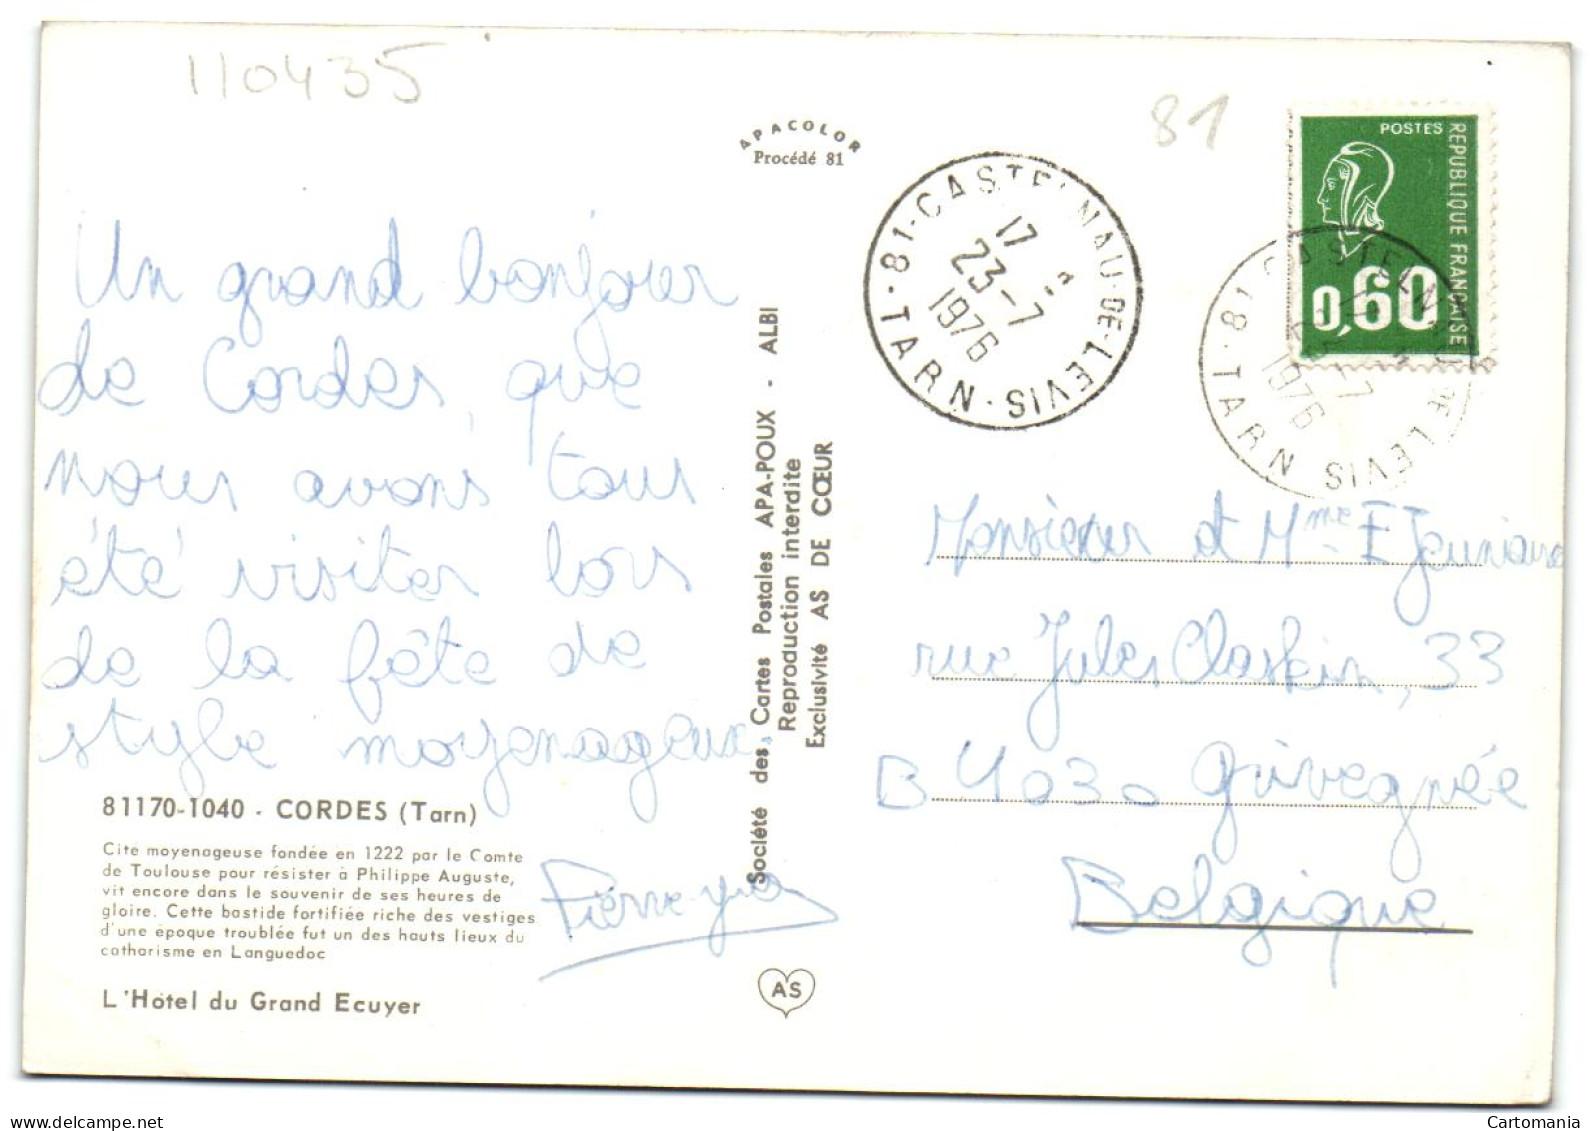 110435
81
APACOLOR
Procédé 81
POSTES
REPUBLIQUE FRANCAISE
0,60
81-CASTELNAU-DE-LEVIS
17 H
23-7
1976
TARN
81-CASTELNAU-DE-LEVIS
23-7
1976
TARN
Un grand bonjour
de Cordes, que
nous avons tous
été visiter lors
de la fête de
style moyenageux.
Société des Cartes Postales APA-POUX - ALBI
Reproduction interdite
Exclusivité AS DE CŒUR
Monsieur et Mme
rue Jules Claskin, 33
B 4030 Grivegnée
Belgique
81170-1040 - CORDES (Tarn)
Cité moyenageuse fondée en 1222 par le Comte
de Toulouse pour résister à Philippe Auguste,
vit encore dans le souvenir de ses heures de
gloire. Cette bastide fortifiée riche des vestiges
d'une époque troublée fut un des hauts lieux du
catharisme en Languedoc
L'Hôtel du Grand Ecuyer
AS
Cartomania